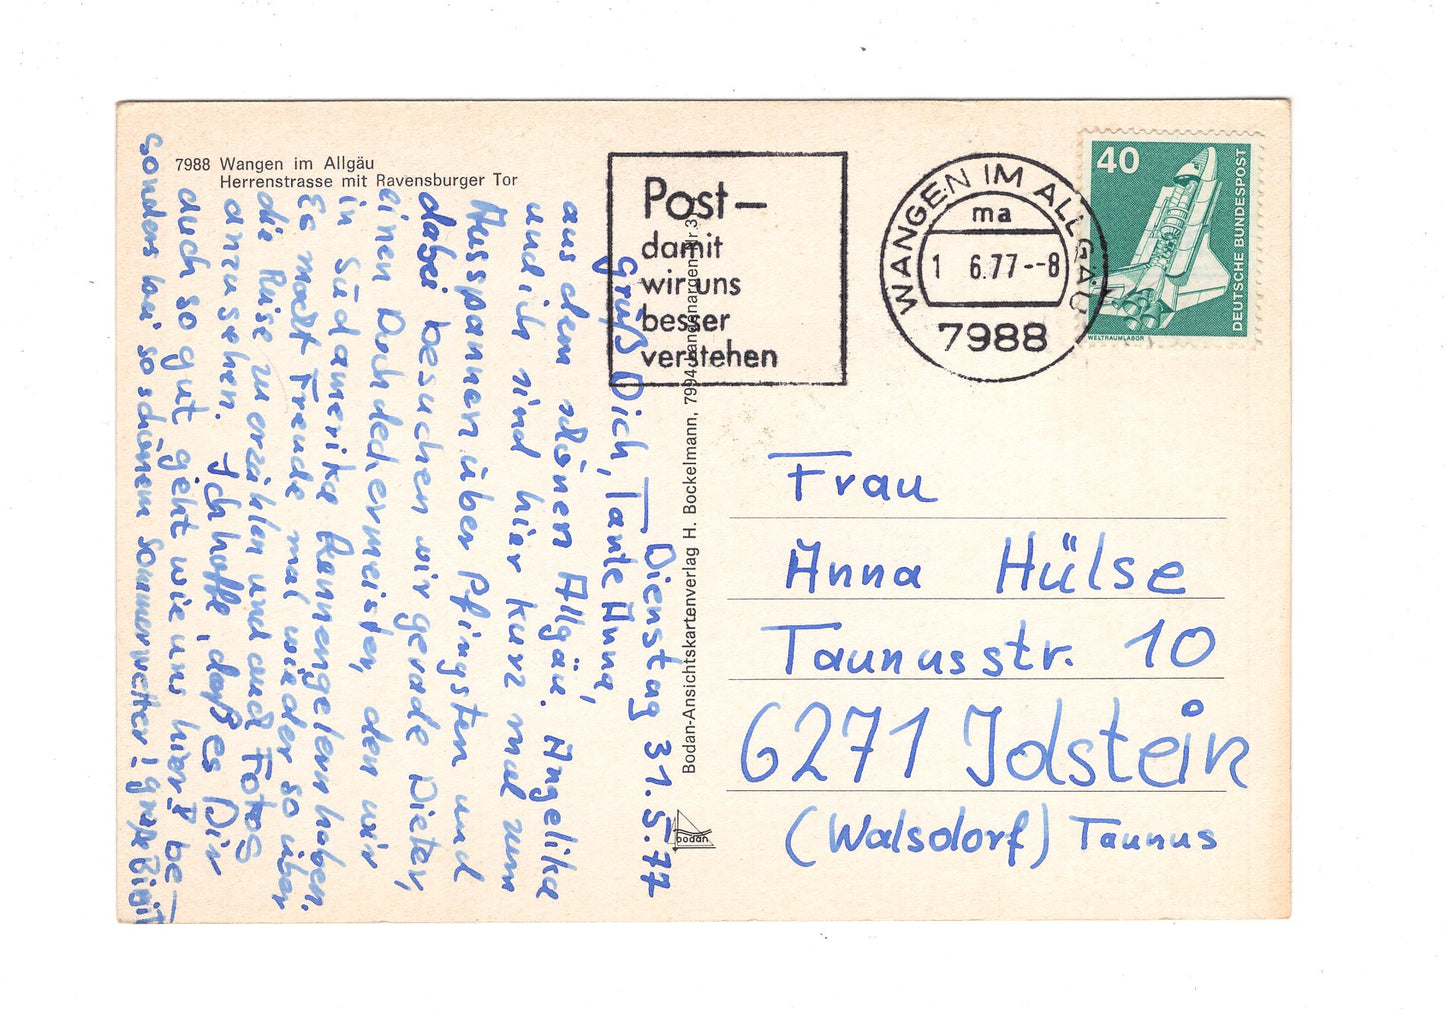 7988 Wangen im Allgäu
Herrenstrasse mit Ravensburger Tor
Dienstag 31.5.77
Grüß Dich, Tante Anna,
aus dem schönen Allgäu. Angelika
und ich sind hier kurz mal zum
Ausspannen über Pfingsten und
dabei besuchen wir gerade Dieter,
einen Dachdeckermeister, den wir
in Südamerika kennengelernt haben.
Es macht Freude mal wieder so über
die Reise zu erzählen und auch Fotos
anzusehen. Ich hoffe, daß es Dir
auch so gut geht wie uns hier be-
sonders bei so schönem Sommerwetter! Gruß Birgit
Bodan-Ansichtskartenverlag H. Bockelmann, 7994 Langenargen Nr. 3
bodan
Post–
damit
wir uns
besser
verstehen
WANGEN IM ALLGÄU
ma
1 6.77--8
7988
40
DEUTSCHE BUNDESPOST
WELTRAUMLABOR
Frau
Anna Hülse
Taunusstr. 10
6271 Idstein
(Walsdorf) Taunus